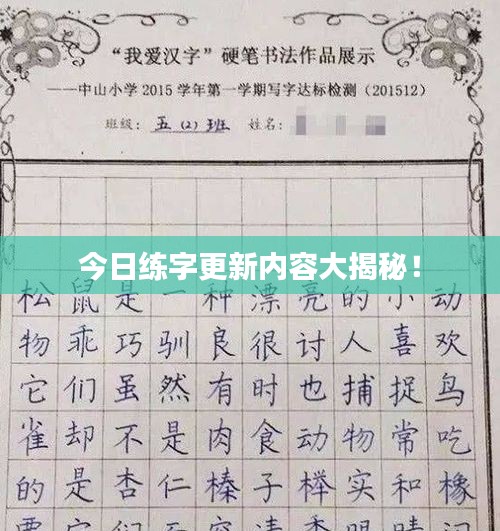 “我爱汉字”硬笔书法作品展示
——中山小学2015学年第一学期写字达标检测（201512）
班级：五（2）班 姓名：
今日练字更新内容大揭秘！
松鼠是一种漂亮的小动
物乖巧驯良很讨人喜欢
它们虽然有时也捕捉鸟
雀却不是肉食动物常吃
的是杏仁榛子榉实和橡